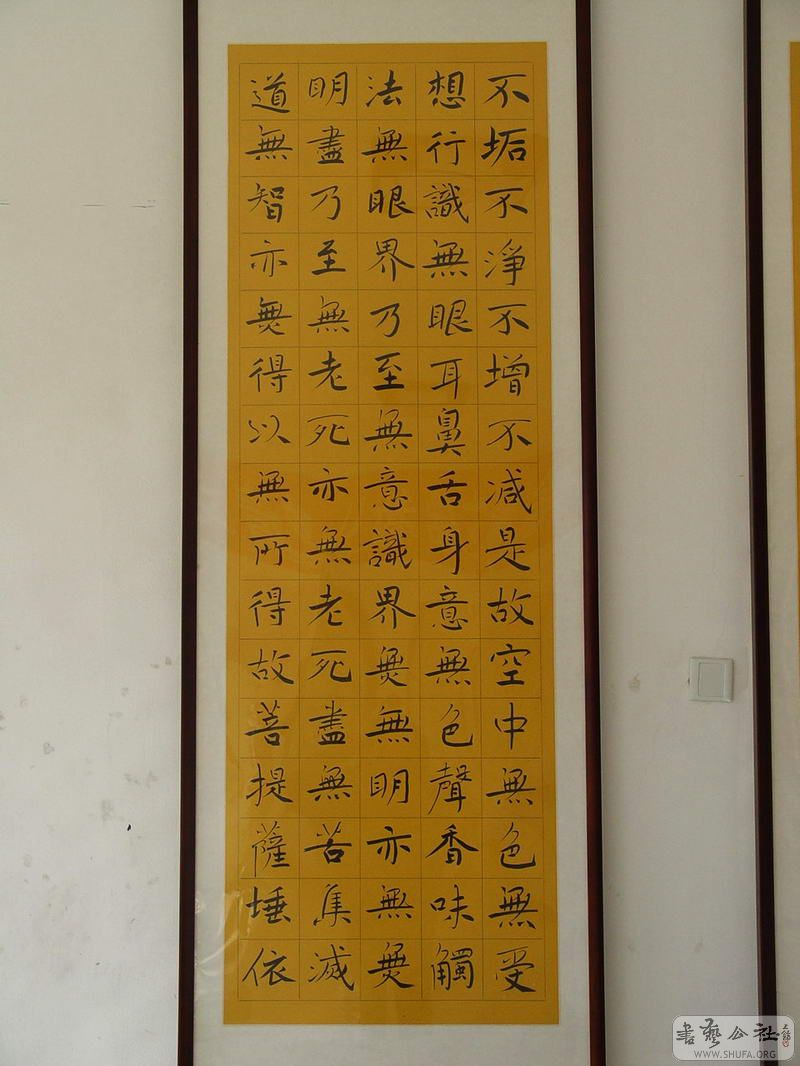 不垢不淨不增不減是故空中無色無受
想行識無眼耳鼻舌身意無色聲香味觸
法無眼界乃至無意識界無無明亦無無
明盡乃至無老死亦無老死盡無苦集滅
道無智亦無得以無所得故菩提薩埵依
書藝公社
WWW.SHUFA.ORG